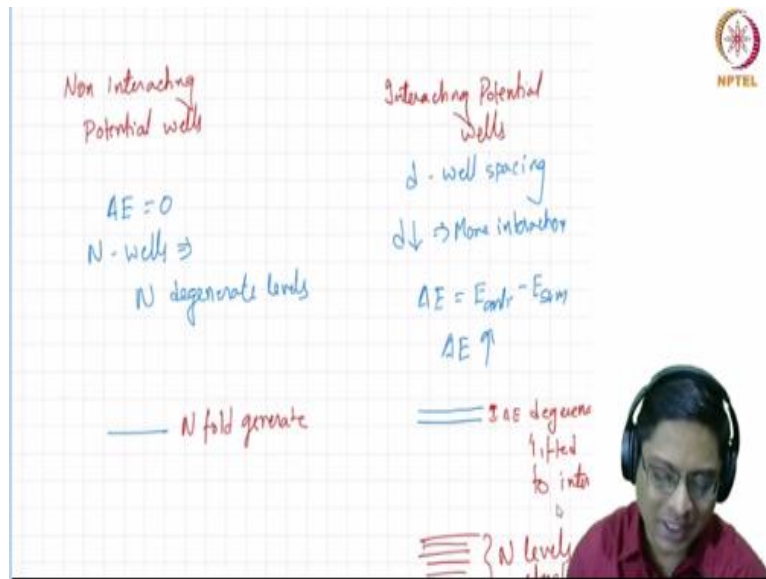 Non Interacting
Potential wells
ΔE = 0
N - wells ⇒
N degenerate levels
N fold generate
Interacting Potential
Wells
d - well spacing
d↓ ⇒ More interaction
ΔE = E_anti - E_sym
ΔE ↑
ΔE degene
lifted
to inter
N levels
NPTEL